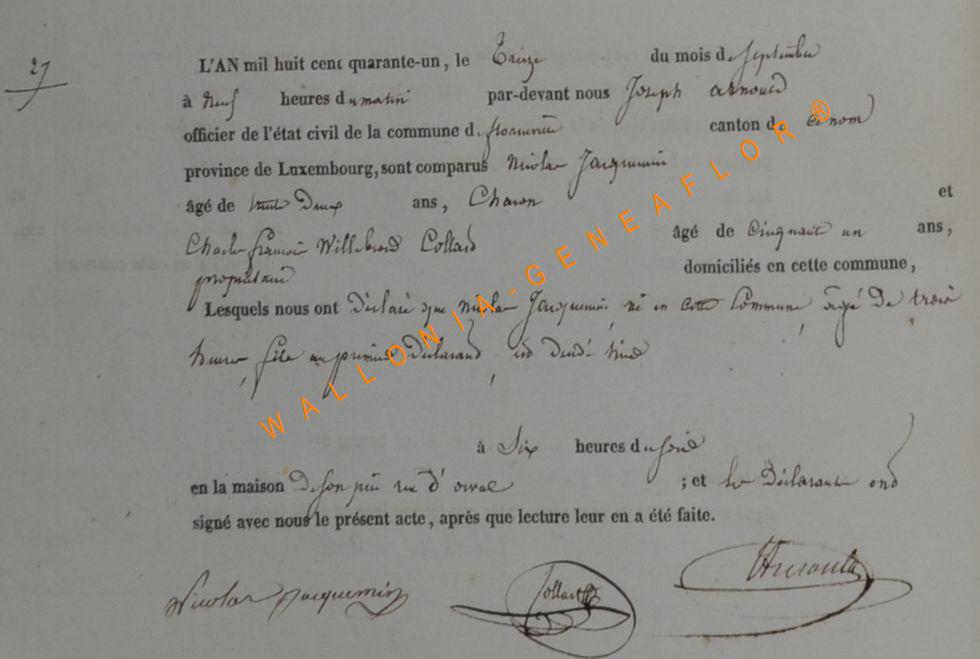 27
L'AN mil huit cent quarante-un, le Treize du mois de Septembre
à neuf heures du matin par-devant nous Joseph Arnould
officier de l'état civil de la commune de florenville canton de
province de Luxembourg, sont comparus Nicolas Jacquemin
âgé de trente Deux ans, Charon et
Charles françois Willebrord Collard âgé de Cinquante un ans,
propriétaire domiciliés en cette commune,
Lesquels nous ont Déclaré que Nicolas Jacquemin, né en cette Commune âgé De trois
heures, fils au premier Déclarant, est décédé hier
à Six heures du soir
en la maison De son père rue d'orval ; et les Déclarants ont
signé avec nous le présent acte, après que lecture leur en a été faite.
Nicolas Jacquemin Collard
WALLONIA-GENEAFLOR®